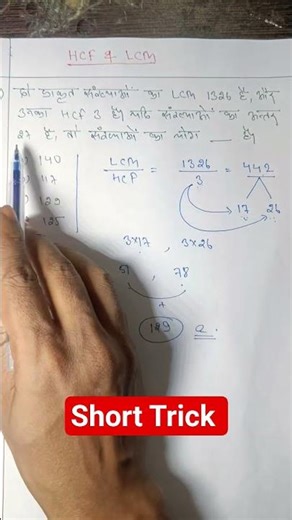 HCF & LCM
दो प्राकृत संख्याओं का LCM 1326 है, और
उनका HCF 3 है। यदि संख्याओं का अन्तर
27 है, तो संख्याओं का योग ___ है।
140
117
129
125
LCM/HCF = 1326/3 = 442
17 26
3×17 , 3×26
51 , 78
+
129 a.
Short Trick